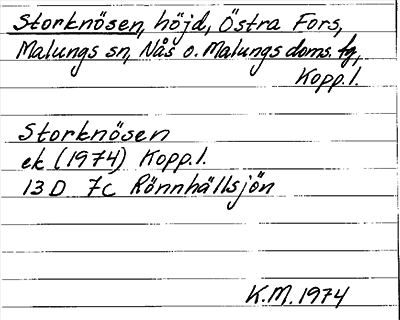 Storknösen, höjd, Östra Fors,
Malungs sn, Nås o. Malungs doms. fg,
Kopp. l.
Storknösen
ek (1974) Kopp. l.
13 D 7c Rönnhällsjön
K.M. 1974